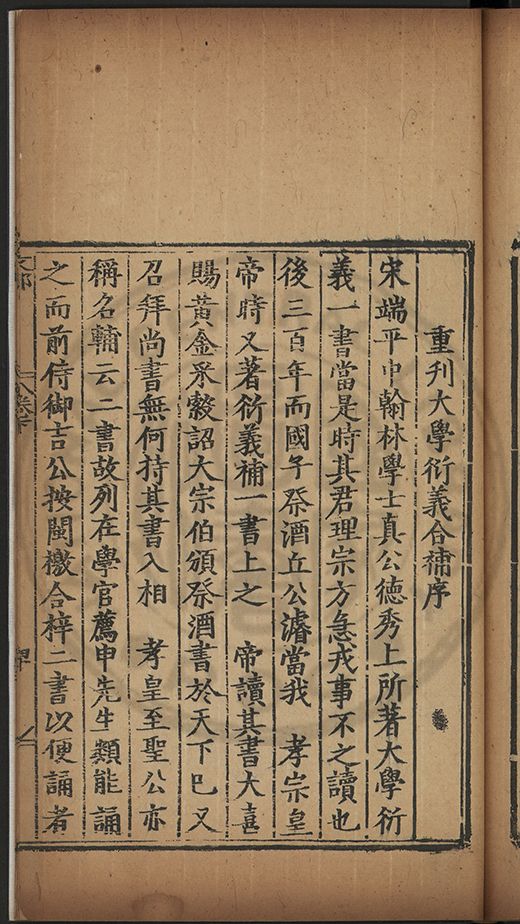 重刊大學衍義合補序
宋端平中翰林學士真公德秀上所著大學衍
義一書當是時其君理宗方急戎事不之讀也
後三百年而國子祭酒丘公濬當我　孝宗皇
帝時又著衍義補一書上之　帝讀其書大喜
賜黃金采縠詔大宗伯頒祭酒書於天下已又
召拜尚書無何持其書入相　孝皇至聖公亦
稱名輔云二書故列在學官薦申先生類能誦
之而前侍御吉公按閩檄合梓二書以便誦者